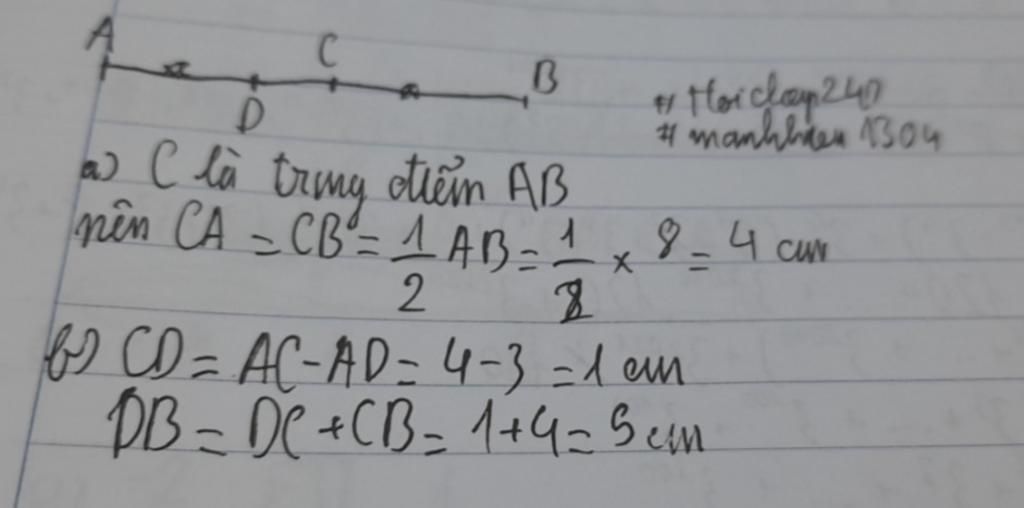 A
C
B
D
# Hoidap247
# manhhien1304
a) C là trung điểm AB
nên CA = CB = 1/2 AB = 1/2 × 8 = 4 cm
b) CD = AC - AD = 4 - 3 = 1 cm
DB = DC + CB = 1 + 4 = 5 cm